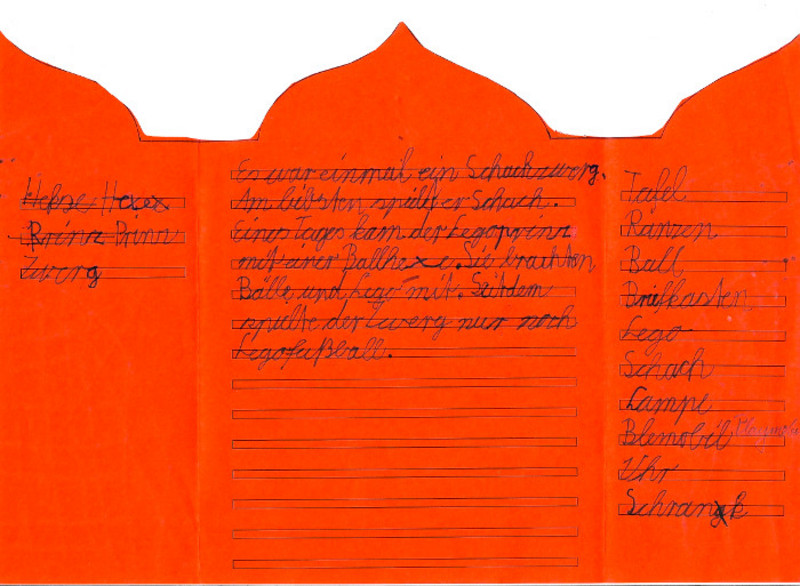 Hekse Hexe
Prinz Prinz
Zwerg
Es war einmal ein Schachzwerg.
Am libsten spilt er Schach.
Eines Tages kam der Legoprinz
mit einer Ballhexe. Sie brachten
Bälle und Lego mit. Seitdem
spilte der Zwerg nur noch
Legofußball.
Tafel
Ränzen
Ball
Briefkasten
Lego
Schach
Lampe
Blemobil Playmobil
Uhr
Schrank